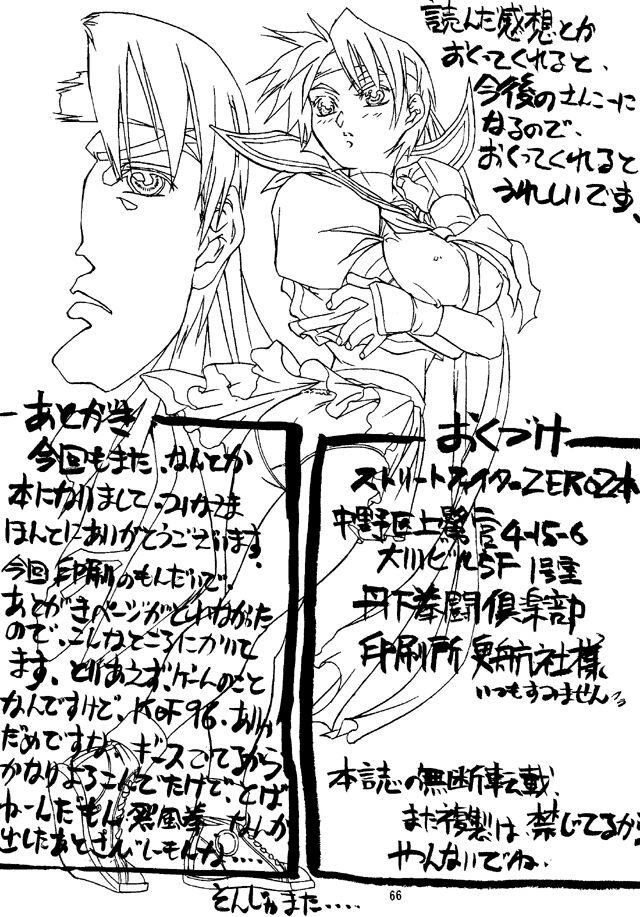 読んだ感想とか
おくってくれると、
今後のさんこーに
なるので、
おくってくれると
うれしいです、
あとがき
今回もまた、なんとか
本になりまして、みなさま
ほんとにありがとうございます、
今回印刷のもんだいで、
あとがきページがとれなかった
ので、こんなところにかいて
ます、とりあえず、ゲームのこと
なんですけど、KOF96、ありゃ
だめですな、ギースでてるから
かなりよろこんでたけど、とば
ねーんだもん烈風拳、なんか
出したあとさびしーもんな....
おくづけ
ストリートファイターZERO2本
中野区上鷺宮4-15-6
大川ビル5F 1号室
丹下拳闘倶楽部
印刷所 曳航社様
いつもすみません
本誌の無断転載、
また複製は、禁じてるから
やんないでね、
そんじゃまた....
66